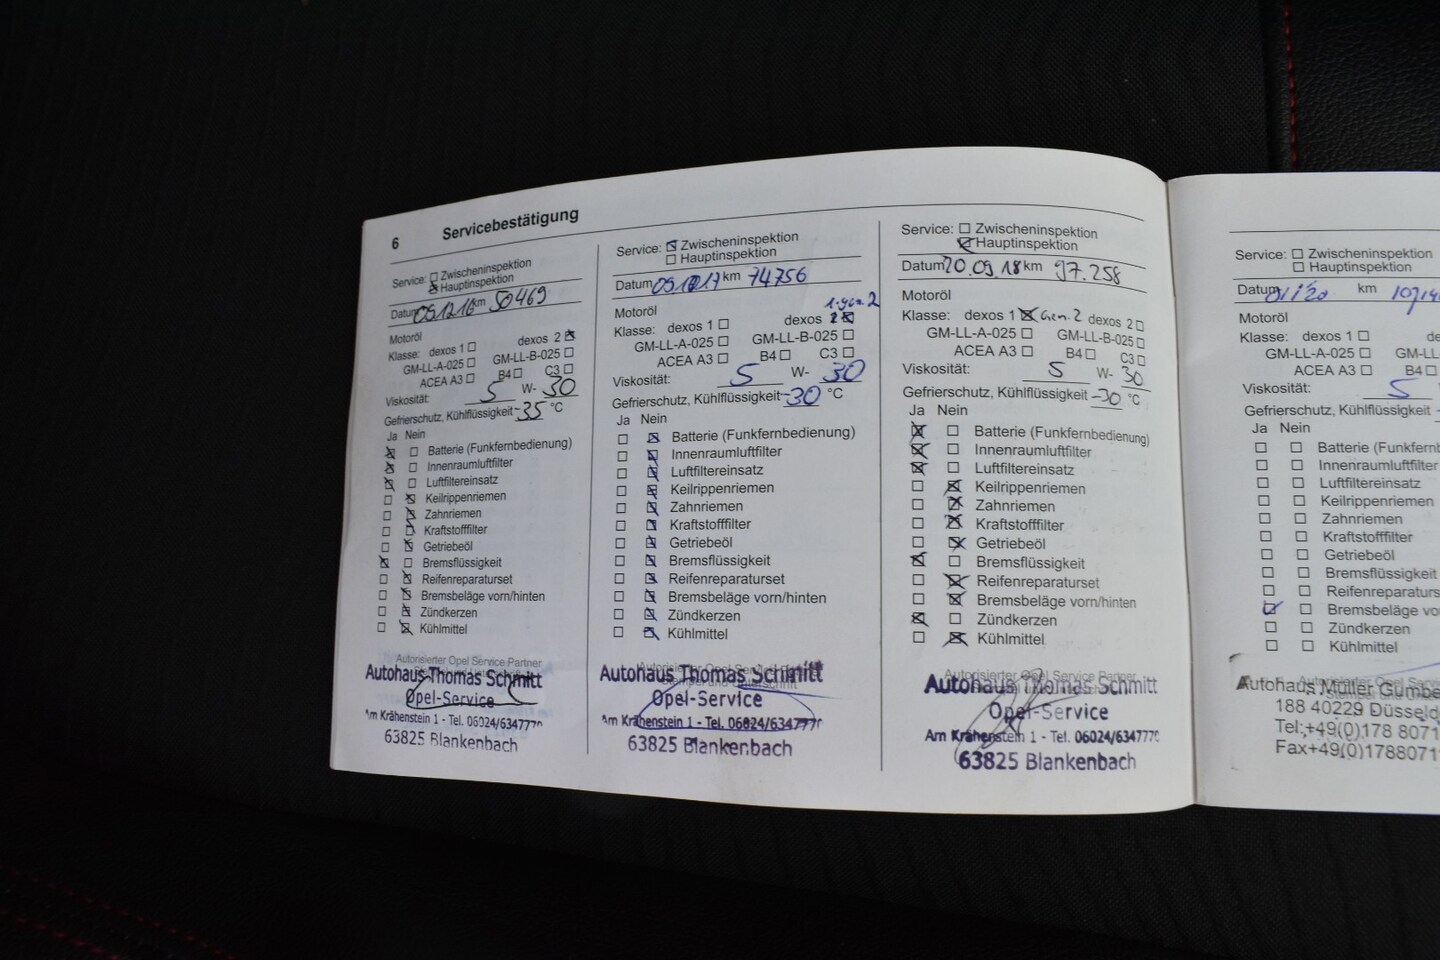 6 Servicebestätigung
Service: ☐ Zwischeninspektion
☒ Hauptinspektion
Datum 05.12.16 km 50469
Motoröl
Klasse: dexos 1 ☐ dexos 2 ☒
GM-LL-A-025 ☐ GM-LL-B-025 ☐
ACEA A3 ☐ B4 ☐ C3 ☐
Viskosität: 5 W- 30
Gefrierschutz, Kühlflüssigkeit -35 °C
Ja Nein
☒ ☐ Batterie (Funkfernbedienung)
☒ ☐ Innenraumluftfilter
☒ ☐ Luftfiltereinsatz
☐ ☒ Keilrippenriemen
☐ ☒ Zahnriemen
☐ ☒ Kraftstofffilter
☐ ☒ Getriebeöl
☒ ☐ Bremsflüssigkeit
☐ ☒ Reifenreparaturset
☐ ☒ Bremsbeläge vorn/hinten
☐ ☒ Zündkerzen
☐ ☒ Kühlmittel
Autorisierter Opel Service Partner
Autohaus Thomas Schmitt
Opel-Service
Am Krähenstein 1 - Tel. 06024/634777
63825 Blankenbach
Service: ☒ Zwischeninspektion
☐ Hauptinspektion
Datum km 74756
Motoröl 1. gen. 2
Klasse: dexos 1 ☐ dexos 2 ☒
GM-LL-A-025 ☐ GM-LL-B-025 ☐
ACEA A3 ☐ B4 ☐ C3 ☐
Viskosität: 5 W- 30
Gefrierschutz, Kühlflüssigkeit -30 °C
Ja Nein
☐ ☒ Batterie (Funkfernbedienung)
☐ ☒ Innenraumluftfilter
☐ ☒ Luftfiltereinsatz
☐ ☒ Keilrippenriemen
☐ ☒ Zahnriemen
☐ ☒ Kraftstofffilter
☐ ☒ Getriebeöl
☐ ☒ Bremsflüssigkeit
☐ ☒ Reifenreparaturset
☐ ☒ Bremsbeläge vorn/hinten
☐ ☒ Zündkerzen
☐ ☒ Kühlmittel
Autorisierter Opel Service
Autohaus Thomas Schmitt
Opel-Service
Am Krähenstein 1 - Tel. 06024/634777
63825 Blankenbach
Service: ☐ Zwischeninspektion
☒ Hauptinspektion
Datum 20.09.18 km 97.258
Motoröl
Klasse: dexos 1 ☒ Gen. 2 dexos 2 ☐
GM-LL-A-025 ☐ GM-LL-B-025 ☐
ACEA A3 ☐ B4 ☐ C3 ☐
Viskosität: 5 W- 30
Gefrierschutz, Kühlflüssigkeit -30 °C
Ja Nein
☒ ☐ Batterie (Funkfernbedienung)
☒ ☐ Innenraumluftfilter
☒ ☐ Luftfiltereinsatz
☐ ☒ Keilrippenriemen
☐ ☒ Zahnriemen
☐ ☒ Kraftstofffilter
☐ ☒ Getriebeöl
☒ ☐ Bremsflüssigkeit
☐ ☒ Reifenreparaturset
☐ ☒ Bremsbeläge vorn/hinten
☒ ☐ Zündkerzen
☐ ☒ Kühlmittel
Autorisierter Opel Service Partner
Autohaus Thomas Schmitt
Opel-Service
Am Krähenstein 1 - Tel. 06024/634777
63825 Blankenbach
Service: ☐ Zwischeninspektion
☐ Hauptinspektion
Datum km
Motoröl
Klasse: dexos 1 ☐
GM-LL-A-025 ☐ GM-L
ACEA A3 ☐ B4 ☐
Viskosität: 5
Gefrierschutz, Kühlflüssigkeit
Ja Nein
☐ ☐ Batterie (Funkfernbedie
☐ ☐ Innenraumluftfilter
☐ ☐ Luftfiltereinsatz
☐ ☐ Keilrippenriemen
☐ ☐ Zahnriemen
☐ ☐ Kraftstofffilter
☐ ☐ Getriebeöl
☐ ☐ Bremsflüssigkeit
☐ ☐ Reifenreparaturs
☑ ☐ Bremsbeläge vo
☐ ☐ Zündkerzen
☐ ☐ Kühlmittel
Autorisierter Opel Service
Autohaus Müller Gumbe
188 40229 Düsseld
Tel:+49(0)178 8071
Fax+49(0)1788071